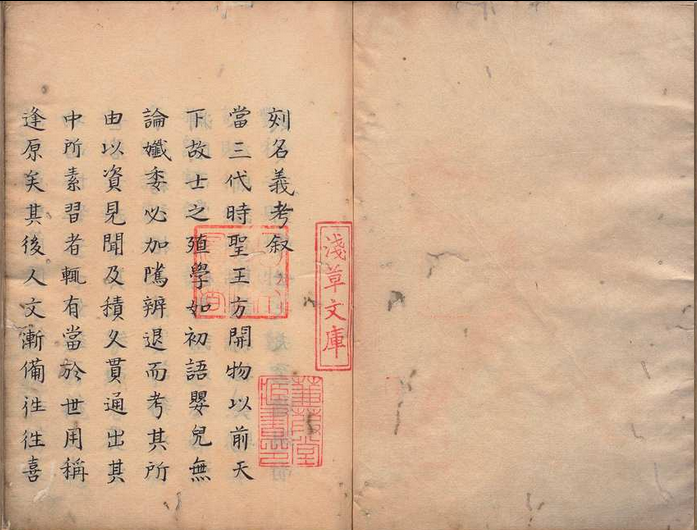 淺草文庫
蒹葭堂
藏書印
刻名義考叙
當三代時聖王方開物以前天
下故士之殖學如初語嬰兒無
論孅委必加隲辨退而考其所
由以資見聞及積久貫通出其
中所素習者輒有當於世用稱
逢原矣其後人文漸備徃徃喜